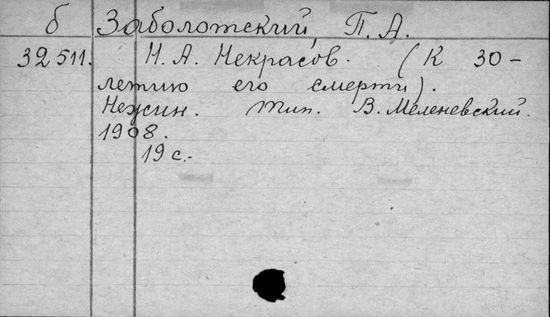 б Заболотский, П. А.
32511. Н. А. Некрасов. (К 30-
летию его смерти).
Нежин. Тип. В. Меленевский.
1908.
19 с.